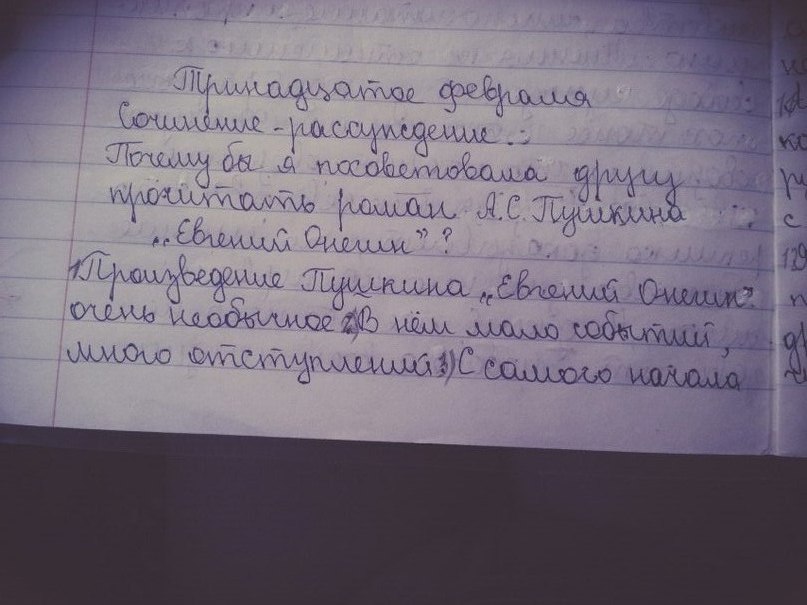 Тринадцатое февраля
Сочинение-рассуждение.:
Почему бы я посоветовала другу
прочитать роман А.С. Пушкина
„Евгений Онегин”?
1)Произведение Пушкина „Евгений Онегин”
очень необычное 2)В нём мало событий,
много отступлений 3)С самого начала